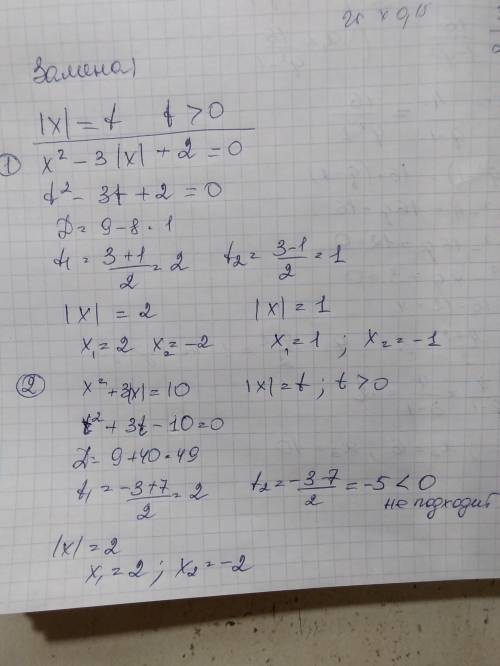 Замена
|x| = t t > 0
① x² - 3|x| + 2 = 0
t² - 3t + 2 = 0
D = 9 - 8 = 1
t₁ = (3+1)/2 = 2 t₂ = (3-1)/2 = 1
|x| = 2 |x| = 1
x₁ = 2 x₂ = -2 x₁ = 1 ; x₂ = -1
② x² + 3|x| = 10 |x| = t ; t > 0
t² + 3t - 10 = 0
D = 9 + 40 = 49
t₁ = (-3+7)/2 = 2 t₂ = (-3-7)/2 = -5 < 0
не подходит
|x| = 2
x₁ = 2 ; x₂ = -2